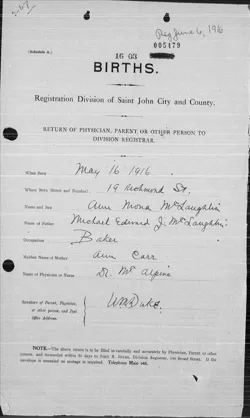 Reg June 6, 1916
(Schedule A.)
005479
16 03
BIRTHS.
Registration Division of Saint John City and County.
RETURN OF PHYSICIAN, PARENT OR OTHER PERSON TO
DIVISION REGISTRAR.
When Born May 16 1916
Where Born, Street and Number 19 Richmond St.
Name and Sex Ann Mona McLaughlin
Name of Father Michael Edward J. McLaughlin
Occupation Baker
Maiden Name of Mother Ann Carr
Name of Physician or Nurse Dr. McAlpine
Signature of Parent, Physician,
or other person, and Post
Office Address.
NOTE.—The above return is to be filled in carefully and accurately by Physician, Parent or other
person, and forwarded within 30 days to John B. Jones, Division Registrar, 146 Broad Street. If the
envelope is mended no postage is required. Telephone Main